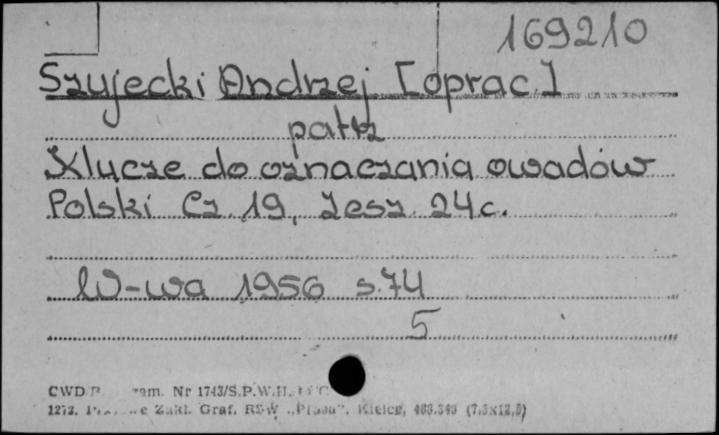 169210
Szyjecki Andrzej [oprac.]
patrz
Klucze do oznaczania owadów
Polski Cz. 19, Zesz. 24c.
W-wa 1956 s.74
5
CWD zam. Nr 1743/S.P.W.H.
1272. Zakł. Graf. RSW „Prasa”, Kielce, (7,5x12,5)